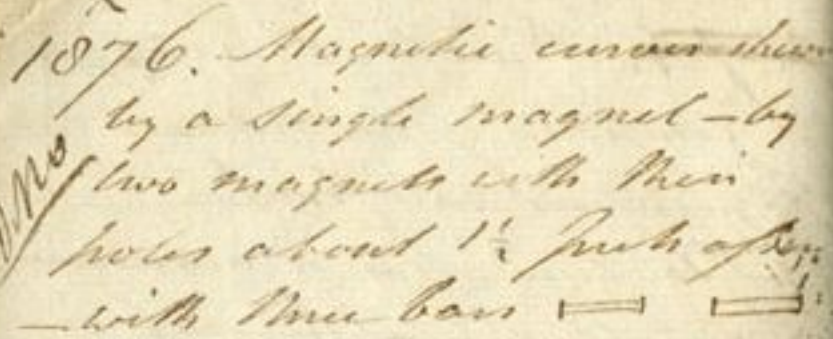 1876. Magnetic curves shewn
by a single magnet – by
two magnets with their
poles about 1½ Inch
– with three bars